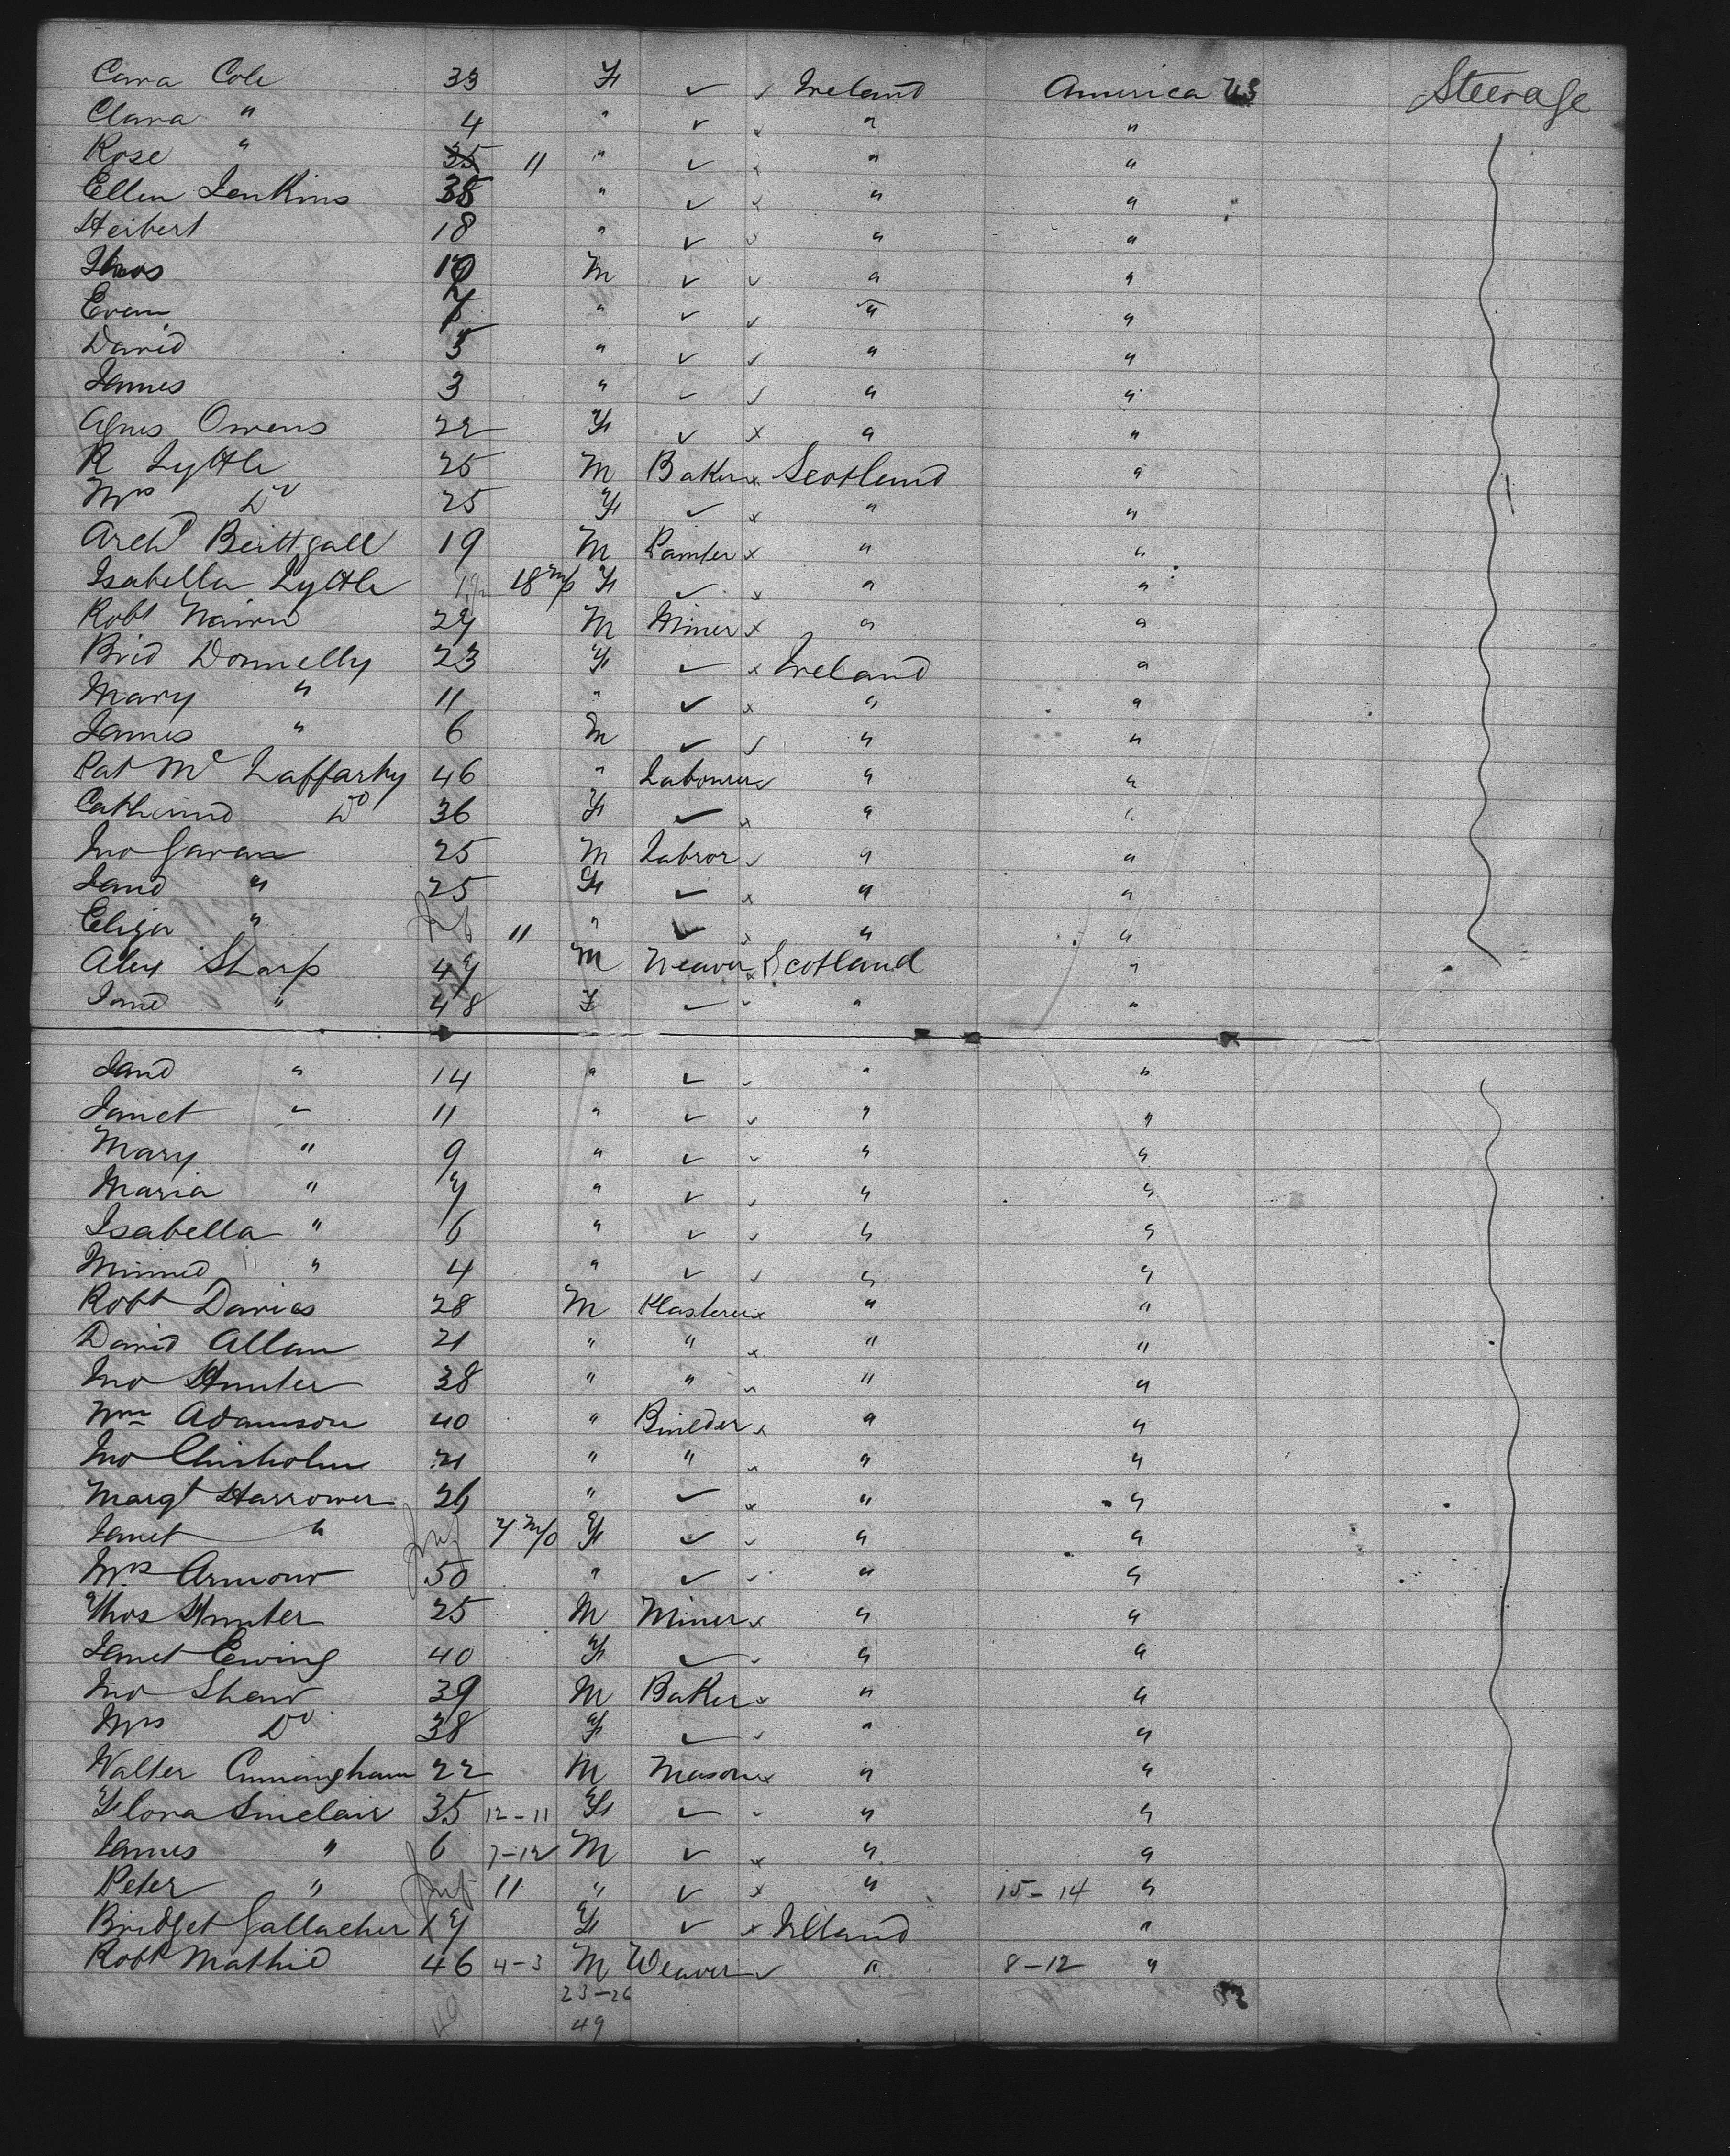 Cara Cole 33 F ✓ ✓ Ireland America US Steerage
Clara " 4 " ✓ x " "
Rose " 11 " ✓ " "
Ellen Jenkins 38 " ✓ " "
Herbert 18 " ✓ " "
Thos M ✓ ✓ " "
Evan 7 " ✓ ✓ " "
David 5 " ✓ ✓ " "
James 3 " ✓ ✓ " "
Agnes Owens 22 F ✓ x " "
R Lyttle 25 M Baker x Scotland "
Mrs Do 25 F ✓ x " "
Archd 19 M Painter x " "
Isabella Lyttle 18 m/s F ✓ x " "
Robt Nairn 27 M Miner x " "
Brid Donnelly 23 F ✓ x Ireland "
Mary " 11 " ✓ x " "
James " 6 M ✓ ✓ " "
Pat Mc Laffarty 46 " Labourer ✓ " "
Catherine Do 36 F ✓ x " "
Jno Gavan 25 M Labror ✓ " "
Jane " 25 F ✓ x " "
Eliza " Inf 11 " ✓ x " "
Alex Sharp 47 M Weaver x Scotland "
Jane " 48 F ✓ ✓ " "
Jane " 14 " ✓ ✓ " "
Janet " 11 " ✓ ✓ " "
Mary " 9 " ✓ ✓ " "
Maria " 7 " ✓ ✓ " "
Isabella " 6 " ✓ ✓ " "
Minnie " 4 " ✓ ✓ " "
Robt Davies 28 M Plasterer x " "
David Allan 21 " " x " "
Jno Hunter 38 " " x " "
Wm Adamson 40 " Builder x " "
Jno Chisholm 21 " " x " "
Margt Harrower 26 " ✓ x " "
Janet " Inf 7 m/o F ✓ ✓ " "
Mrs Armour 50 " ✓ ✓ " "
Thos Hunter 25 M Miner x " "
Janet Ewing 40 F ✓ ✓ " "
Jno Shaw 39 M Baker x " "
Mrs Do 38 F ✓ ✓ " "
Walter Cunningham 22 M Mason x " "
Flora Sinclair 35 12-11 F ✓ ✓ " "
James " 6 7-12 M ✓ x " "
Peter " Inf 11 " ✓ x " 15-14 "
Bridget Gallacher 19 F ✓ x Ireland "
Robt Mathie 46 4-3 M Weaver ✓ " 8-12 "
23-26
49